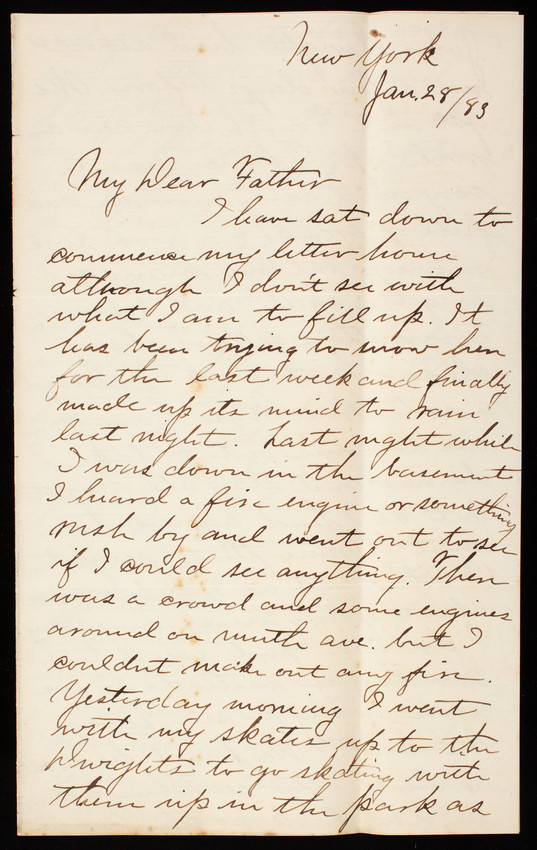 New York
Jan. 28/83
My Dear Father
I have sat down to
commence my letter home
although I don't see with
what I am to fill up. It
has been trying to snow here
for the last week and finally
made up its mind to rain
last night. Last night while
I was down in the basement
I heard a fire engine or something
rush by and went out to see
if I could see anything. There
was a crowd and some engines
around on ninth ave. but I
couldnt make out any fire.
Yesterday morning I went
with my skates up to the
Dwights to go skating with
them up in the park as